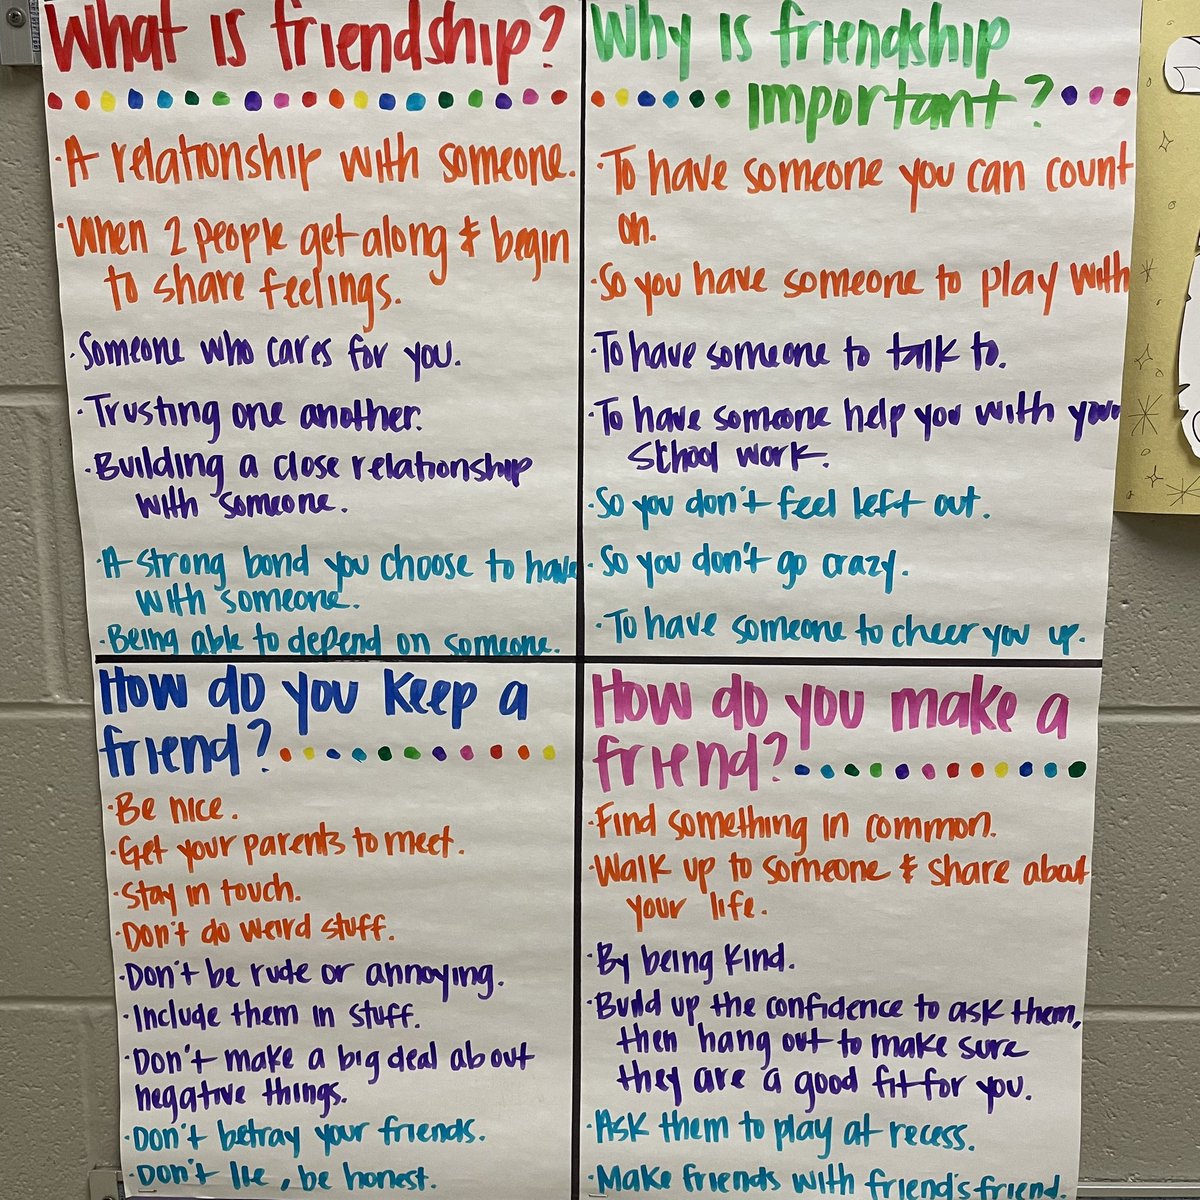 What is friendship?
·A relationship with someone.
·When 2 people get along & begin
to share feelings.
·Someone who cares for you.
·Trusting one another.
·Building a close relationship
with someone.
·A strong bond you choose to have
with someone.
·Being able to depend on someone.
Why is friendship
important?
·To have someone you can count
on.
·So you have someone to play with
·To have someone to talk to.
·To have someone help you with your
school work.
·So you don't feel left out.
·So you don't go crazy.
·To have someone to cheer you up.
How do you keep a
friend?
·Be nice.
·Get your parents to meet.
·Stay in touch.
·Don't do weird stuff.
·Don't be rude or annoying.
·Include them in stuff.
·Don't make a big deal about
negative things.
·Don't betray your friends.
·Don't lie, be honest.
How do you make a
friend?
·Find something in common.
·Walk up to someone & share about
your life.
·By being kind.
·Build up the confidence to ask them,
then hang out to make sure
they are a good fit for you.
·Ask them to play at recess.
·Make friends with friend's friend.